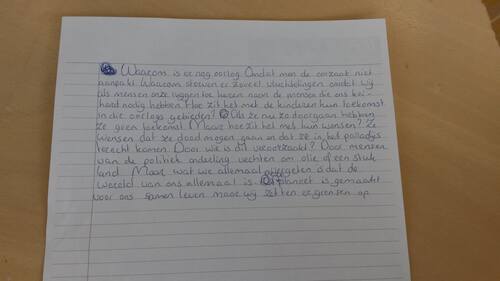 Waarom is er nog oorlog. Omdat men de oorzaak niet
aanpakt Waarom sterven er zoveel vluchtelingen omdat wij
als mensen onze ruggen toe keren naar de mensen die ons kei-
hard nodig hebben. Hoe zit het met de kinderen hun toekomst
in die oorlogs gebieden? Als ze nu zo doorgaan hebben
ze geen toekomst. Maar hoe zit het met hun wensen? Ze
wensen dat ze dood mogen gaan en dat ze in het paradijs
terecht komen. Door wie is dit veroorzaakt? Door mensen
van de politiek onderling vechten om olie of een stuk
land Maar wat we allemaal vergeten is dat de
wereld van ons allemaal is. planeet is gemaakt
voor ons samen leven maar wij zetten er grenzen op